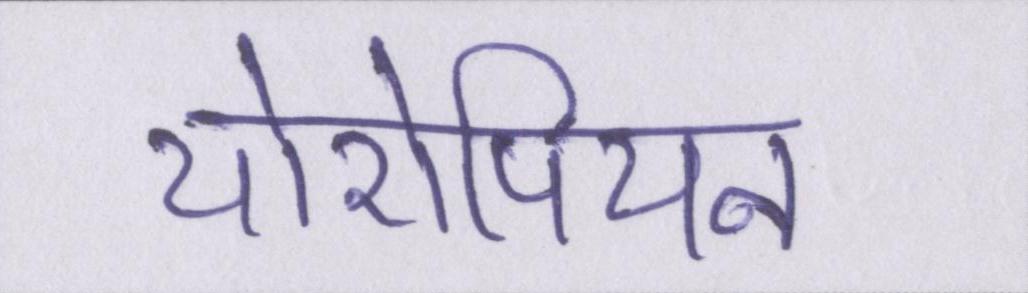 योरोपियन